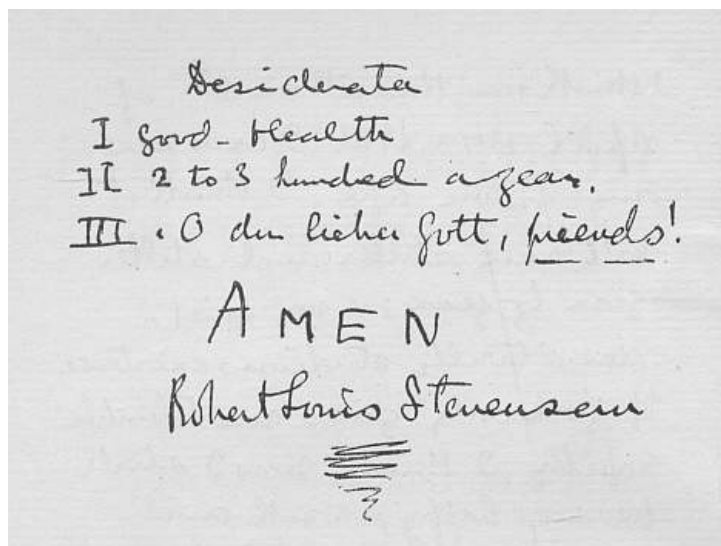 Desiderata
I Good-Health
II 2 to 3 hundred a year.
III. O du lieber Gott, friends!
AMEN
Robert Louis Stevenson